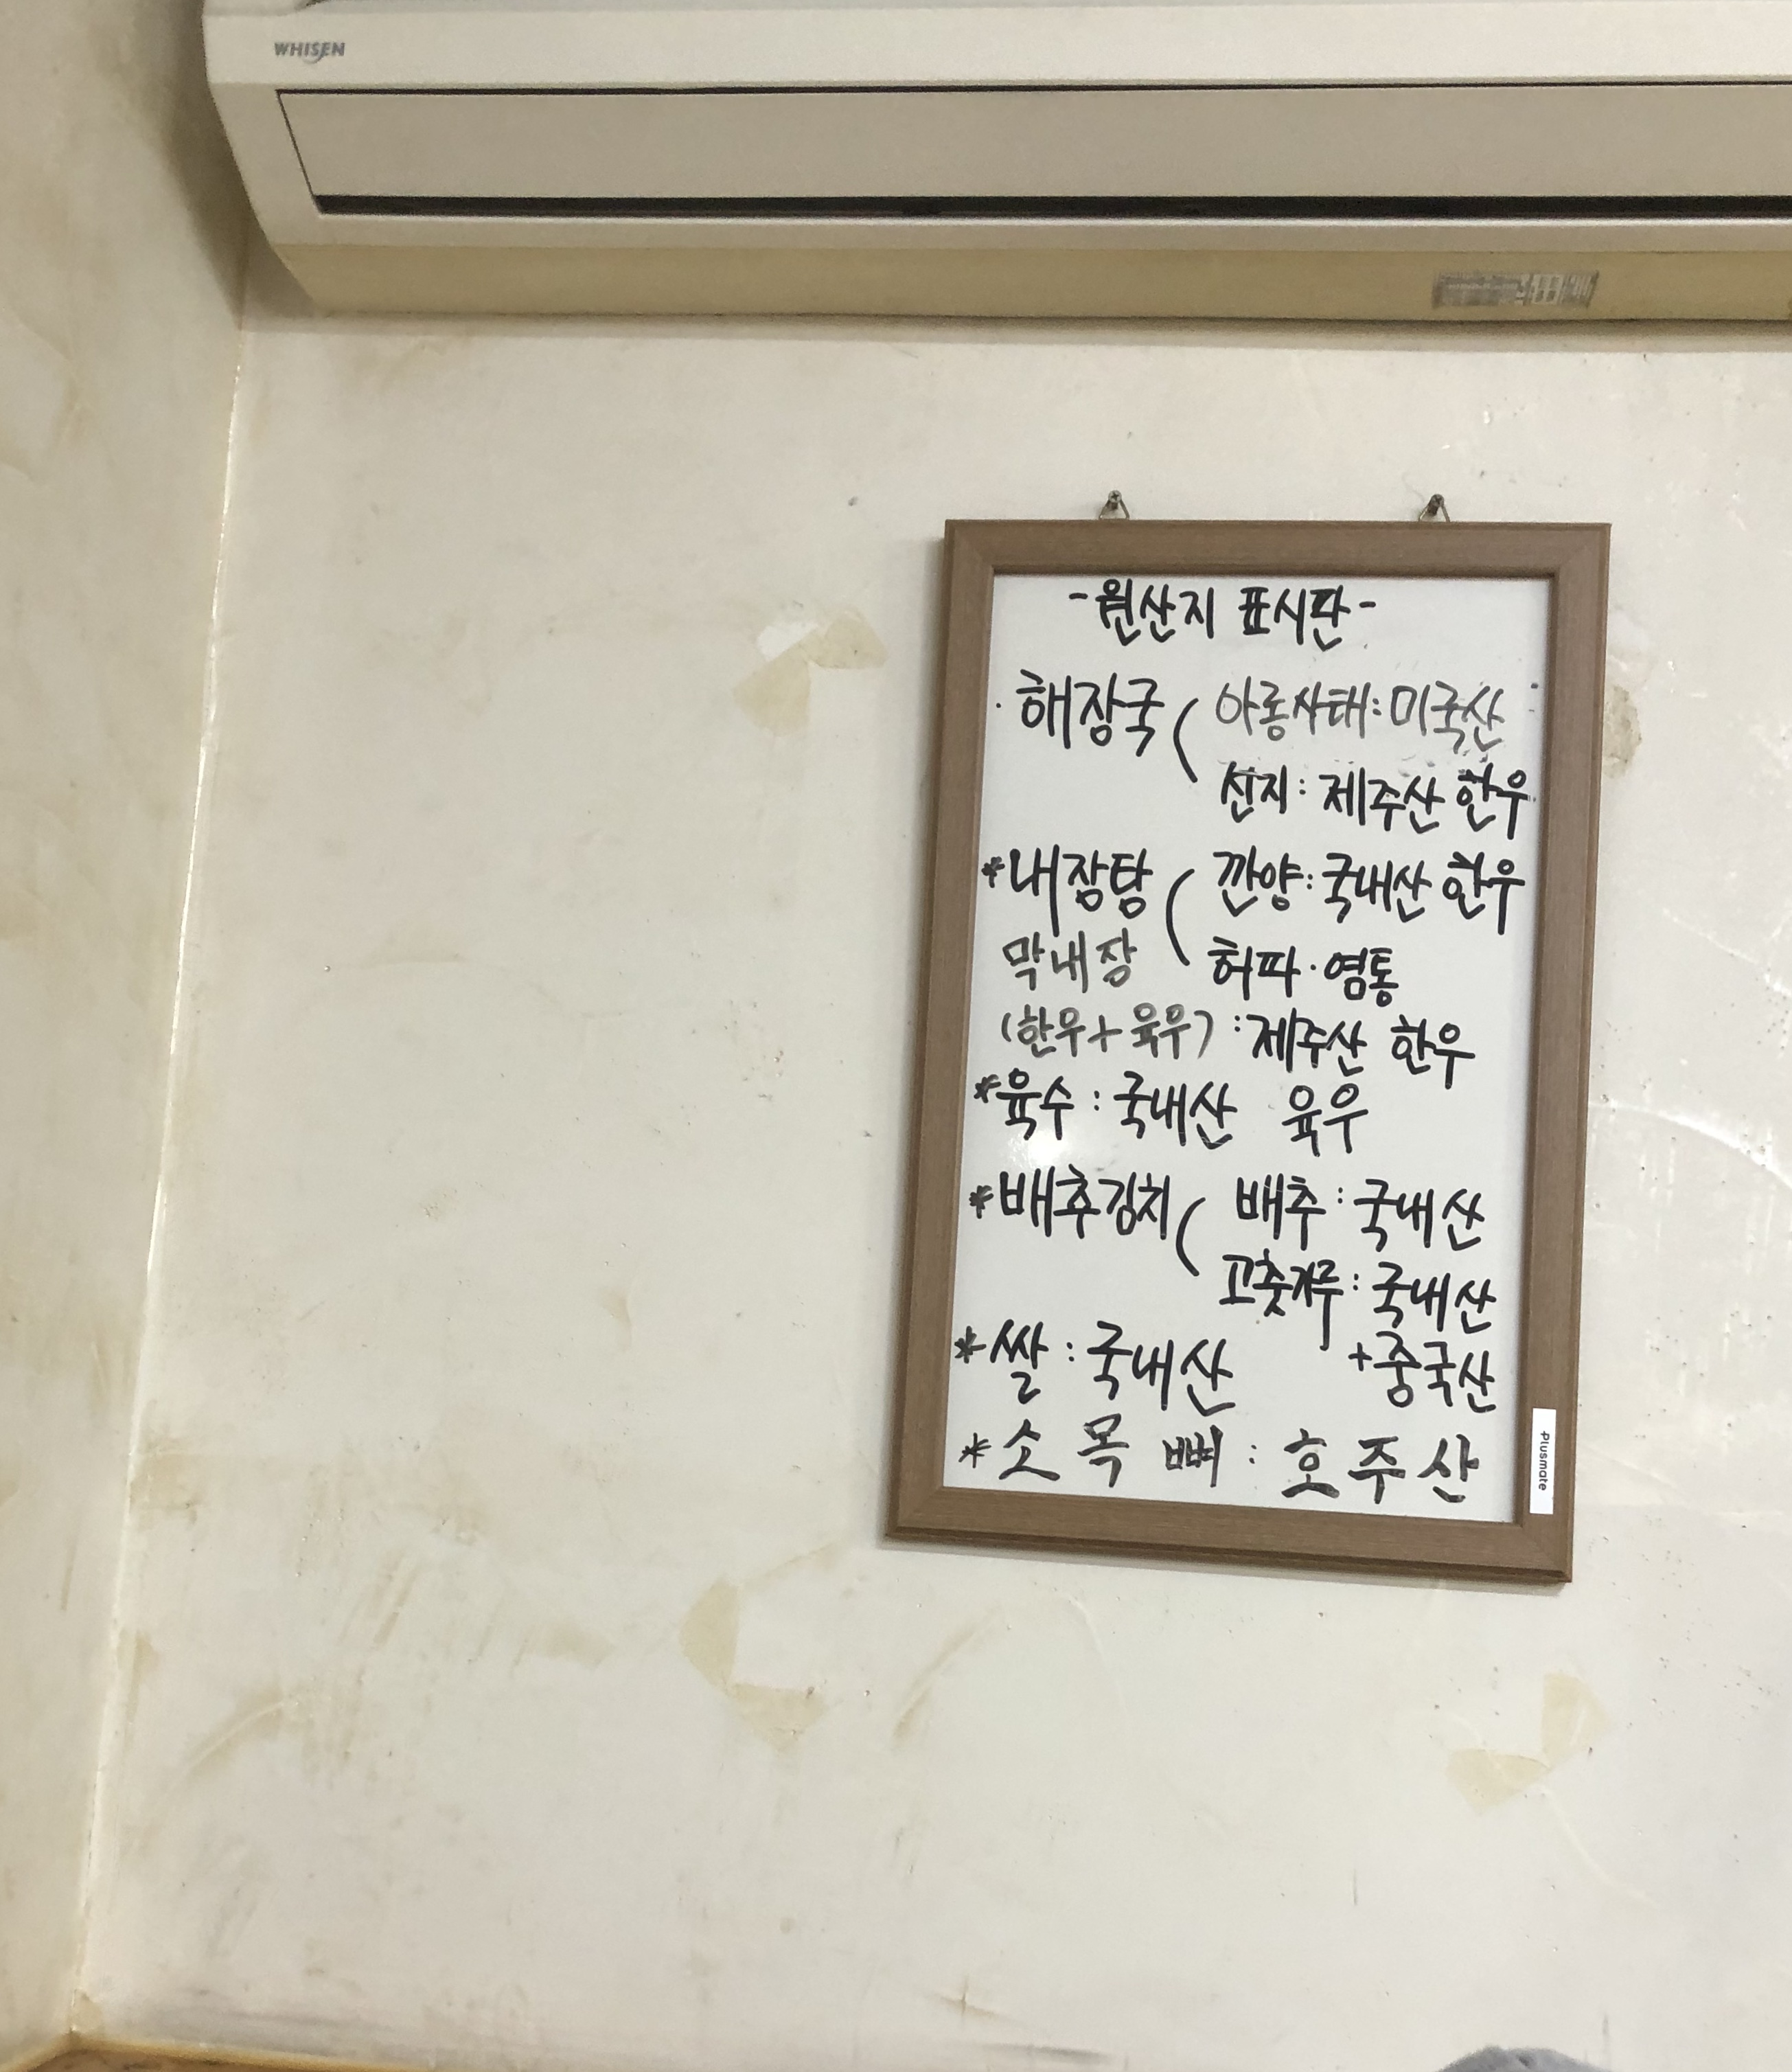 WHISEN
-원산지 표시판-
· 해장국 ( 아롱사태: 미국산
선지: 제주산 한우
*내장탕 ( 깐양: 국내산 한우
막내장 허파·염통
(한우+육우) :제주산 한우
*육수: 국내산 육우
*배추김치 ( 배추: 국내산
고춧가루: 국내산
*쌀: 국내산 +중국산
*소 목 뼈: 호주산
Plusmate